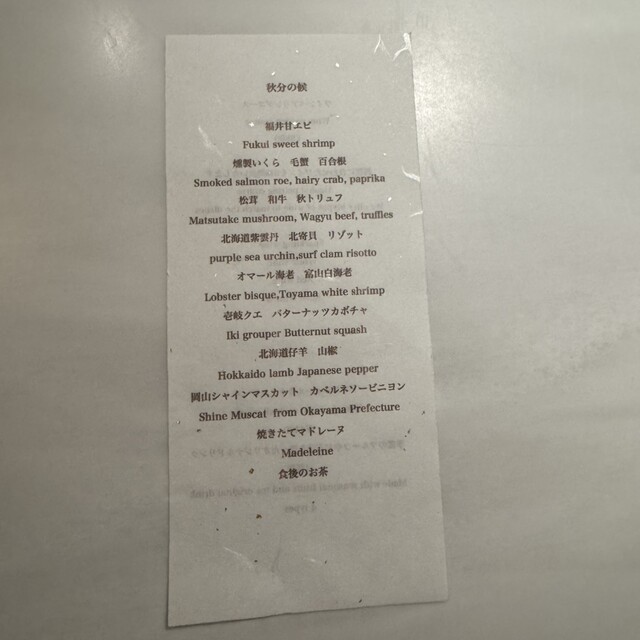 秋分の候
福井甘エビ
Fukui sweet shrimp
燻製いくら 毛蟹 百合根
Smoked salmon roe, hairy crab, paprika
松茸 和牛 秋トリュフ
Matsutake mushroom, Wagyu beef, truffles
北海道紫雲丹 北寄貝 リゾット
purple sea urchin,surf clam risotto
オマール海老 富山白海老
Lobster bisque,Toyama white shrimp
壱岐クエ バターナッツカボチャ
Iki grouper Butternut squash
北海道仔羊 山椒
Hokkaido lamb Japanese pepper
岡山シャインマスカット カベルネソービニヨン
Shine Muscat from Okayama Prefecture
焼きたてマドレーヌ
Madeleine
食後のお茶